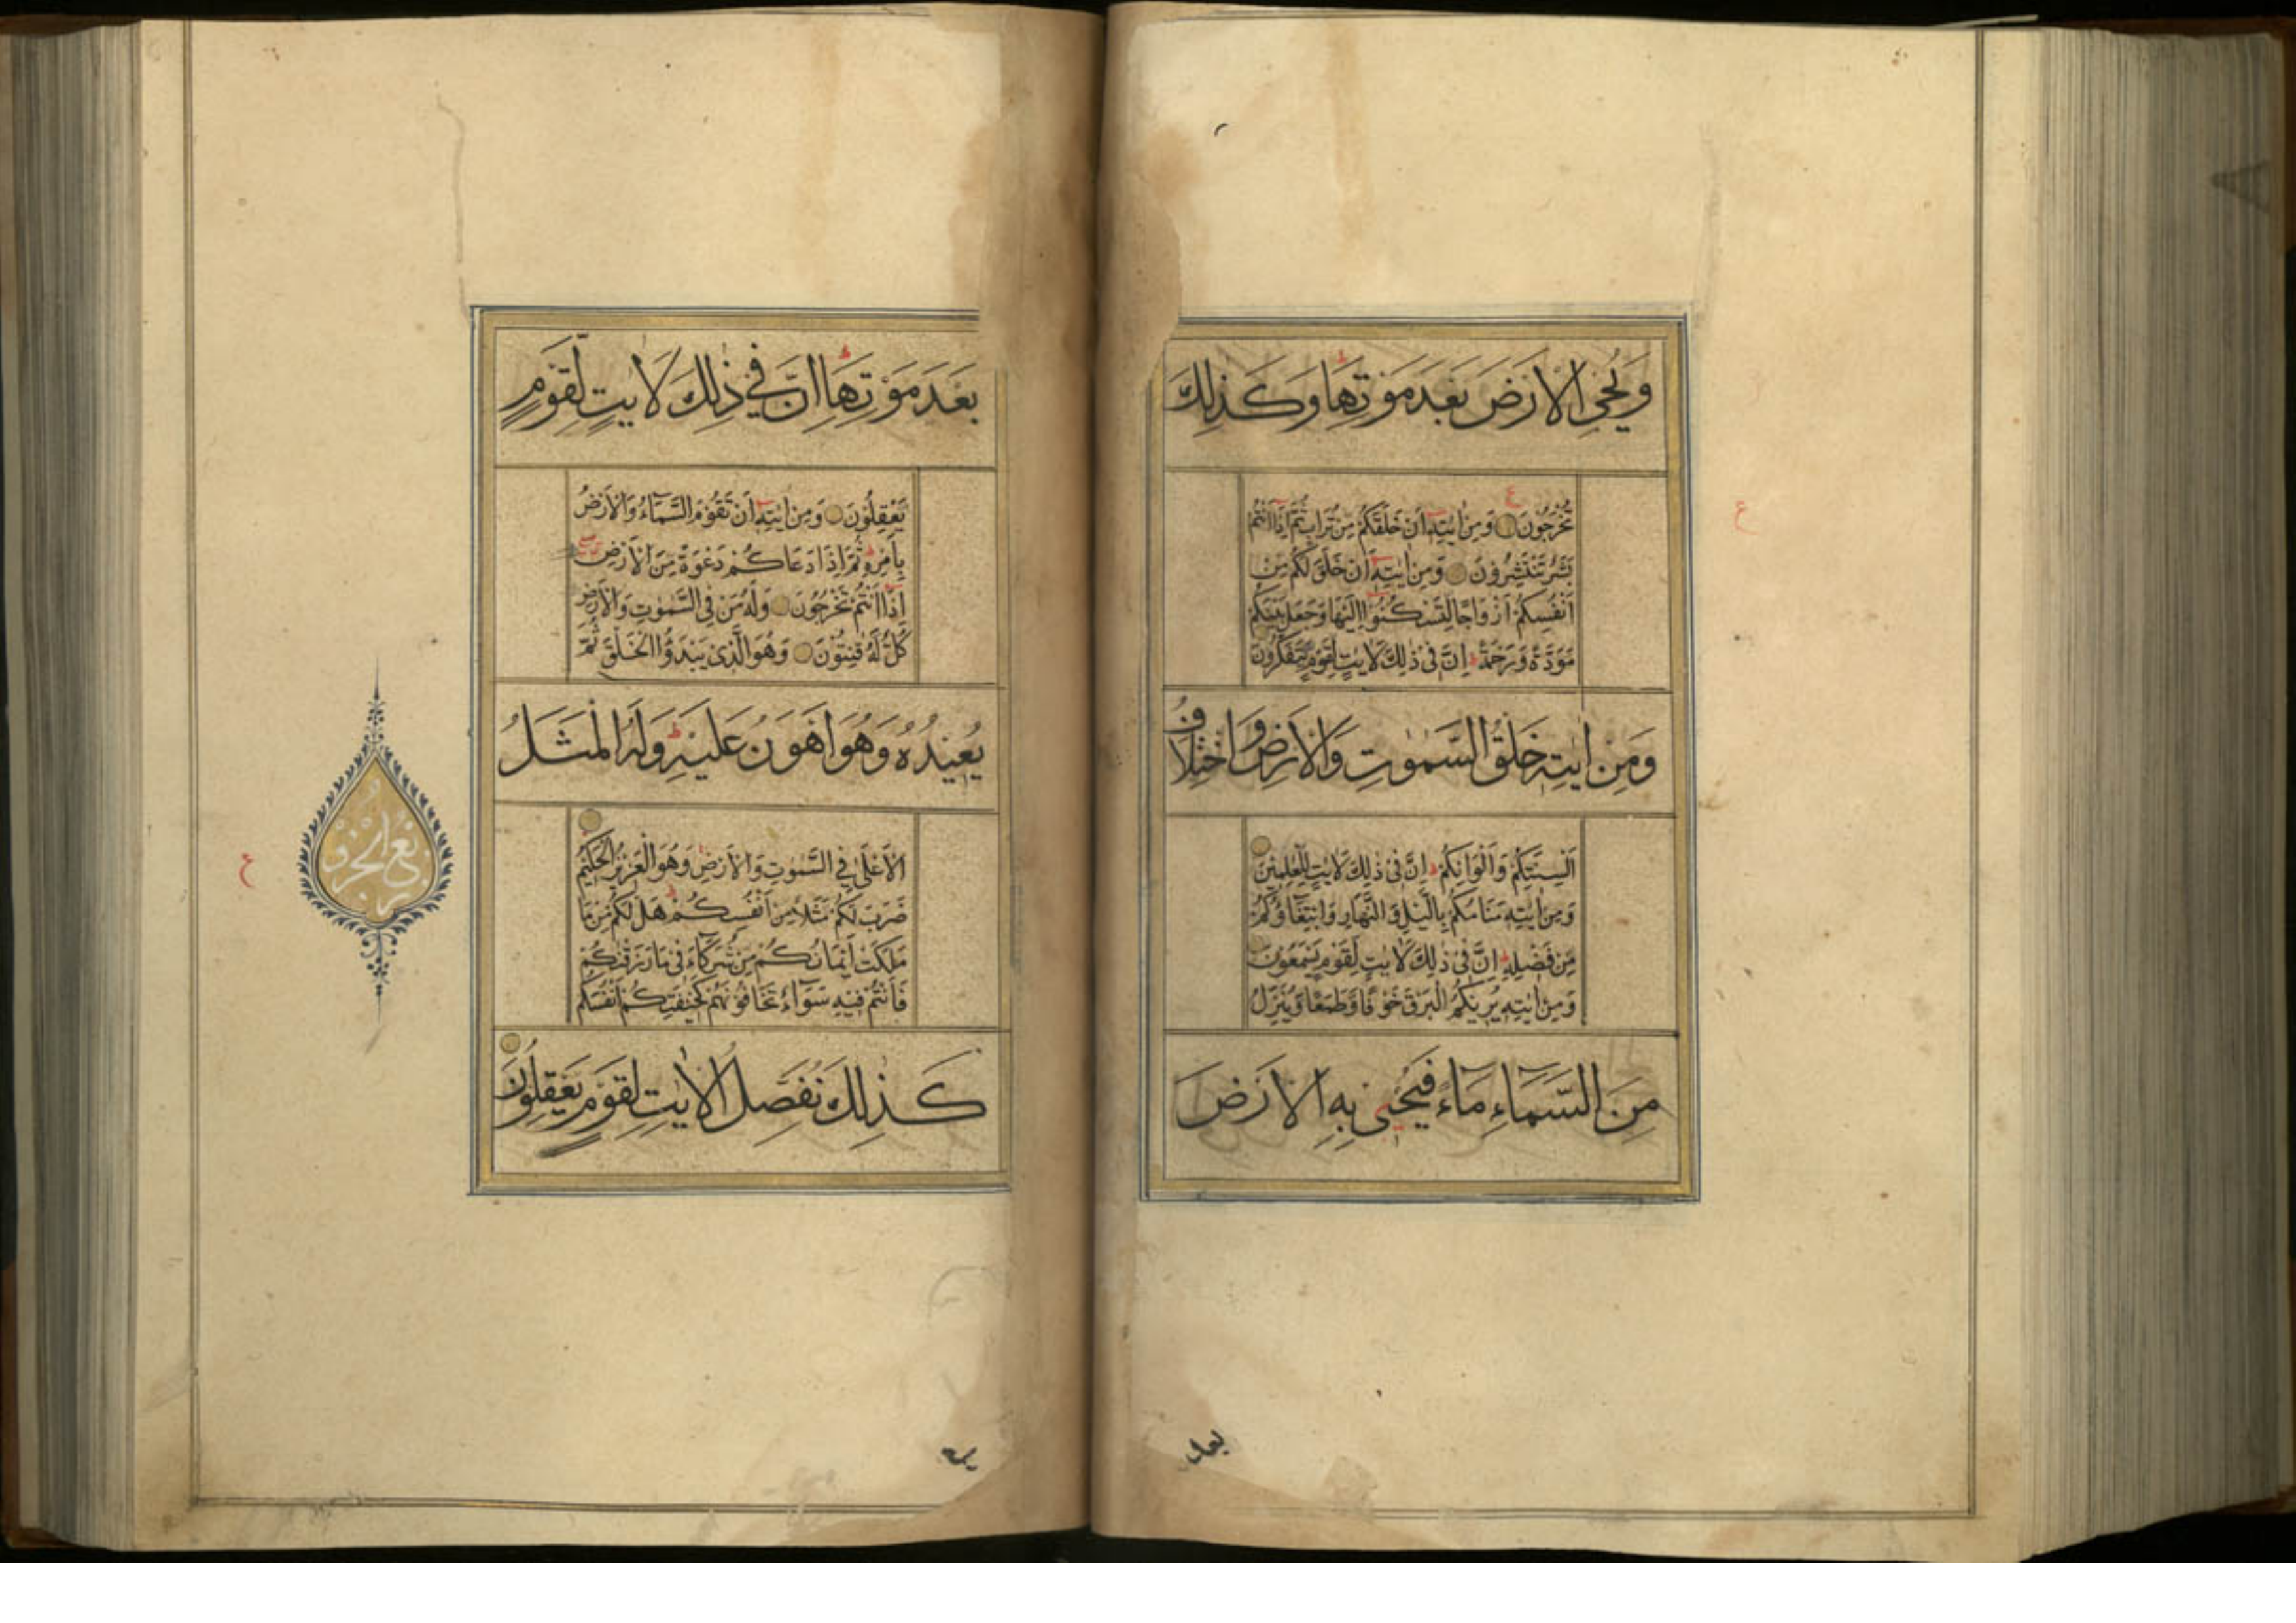 وَيُحْيِ الْاَرْضَ بَعْدَ مَوْتِهَا ؕ وَكَذٰلِكَ
تُخْرَجُوْنَ وَمِنْ اٰيٰتِهٖۤ اَنْ خَلَقَكُمْ مِّنْ تُرَابٍ ثُمَّ اِذَاۤ اَنْتُمْ
بَشَرٌ تَنْتَشِرُوْنَ وَمِنْ اٰيٰتِهٖۤ اَنْ خَلَقَ لَكُمْ مِّنْ
اَنْفُسِكُمْ اَزْوَاجًا لِّتَسْكُنُوْۤا اِلَيْهَا وَجَعَلَ بَيْنَكُمْ
مَّوَدَّةً وَّرَحْمَةً ؕ اِنَّ فِيْ ذٰلِكَ لَاٰيٰتٍ لِّقَوْمٍ يَّتَفَكَّرُوْنَ
وَمِنْ اٰيٰتِهٖ خَلْقُ السَّمٰوٰتِ وَالْاَرْضِ وَاخْتِلَافُ
اَلْسِنَتِكُمْ وَاَلْوَانِكُمْ ؕ اِنَّ فِيْ ذٰلِكَ لَاٰيٰتٍ لِّلْعٰلِمِيْنَ
وَمِنْ اٰيٰتِهٖ مَنَامُكُمْ بِالَّيْلِ وَالنَّهَارِ وَابْتِغَآؤُكُمْ
مِّنْ فَضْلِهٖ ؕ اِنَّ فِيْ ذٰلِكَ لَاٰيٰتٍ لِّقَوْمٍ يَّسْمَعُوْنَ
وَمِنْ اٰيٰتِهٖ يُرِيْكُمُ الْبَرْقَ خَوْفًا وَّطَمَعًا وَّيُنَزِّلُ
مِنَ السَّمَآءِ مَآءً فَيُحْيٖ بِهِ الْاَرْضَ
ع
بعد
بَعْدَ مَوْتِهَا ؕ اِنَّ فِيْ ذٰلِكَ لَاٰيٰتٍ لِّقَوْمٍ
يَّعْقِلُوْنَ وَمِنْ اٰيٰتِهٖۤ اَنْ تَقُوْمَ السَّمَآءُ وَالْاَرْضُ
بِاَمْرِهٖ ؕ ثُمَّ اِذَا دَعَاكُمْ دَعْوَةً مِّنَ الْاَرْضِ
اِذَاۤ اَنْتُمْ تَخْرُجُوْنَ وَلَهٗ مَنْ فِي السَّمٰوٰتِ وَالْاَرْضِ
كُلٌّ لَّهٗ قٰنِتُوْنَ وَهُوَ الَّذِيْ يَبْدَؤُا الْخَلْقَ ثُمَّ
يُعِيْدُهٗ وَهُوَ اَهْوَنُ عَلَيْهِ ؕ وَلَهُ الْمَثَلُ
الْاَعْلٰى فِي السَّمٰوٰتِ وَالْاَرْضِ وَهُوَ الْعَزِيْزُ الْحَكِيْمُ
ضَرَبَ لَكُمْ مَّثَلًا مِّنْ اَنْفُسِكُمْ ؕ هَلْ لَّكُمْ مِّنْ مَّا
مَلَكَتْ اَيْمَانُكُمْ مِّنْ شُرَكَآءَ فِيْ مَا رَزَقْنٰكُمْ
فَاَنْتُمْ فِيْهِ سَوَآءٌ تَخَافُوْنَهُمْ كَخِيْفَتِكُمْ اَنْفُسَكُمْ
كَذٰلِكَ نُفَصِّلُ الْاٰيٰتِ لِقَوْمٍ يَّعْقِلُوْنَ
ع